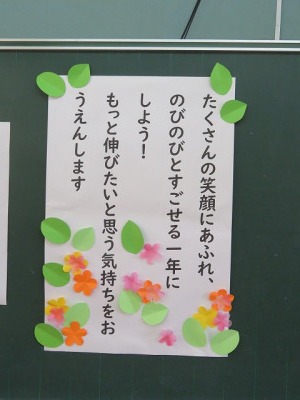 たくさんの笑顔にあふれ、
のびのびとすごせる一年に
しよう！
もっと伸びたいと思う気持ちをお
うえんします